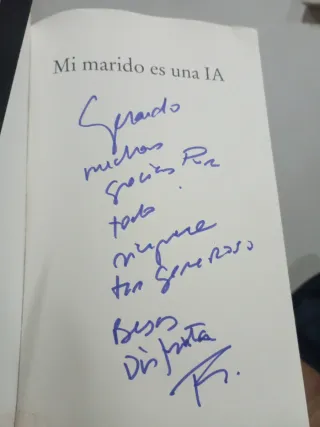 Mi marido es una IA
Gerardo
muchas
gracias por
todo
siempre
tan generoso
Besos
Disfruta